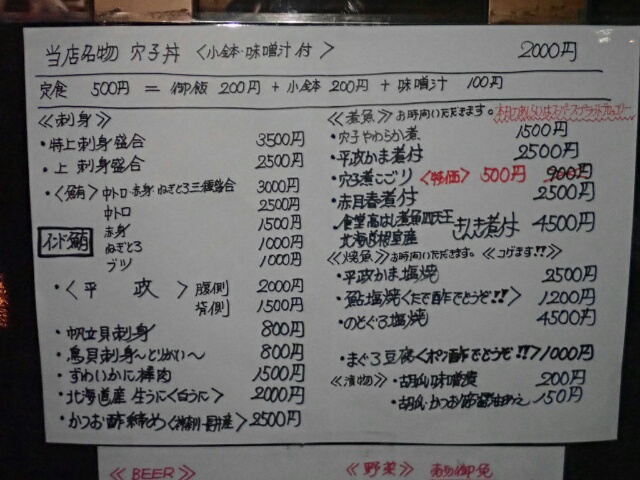 当店名物 穴子丼 〈小鉢・味噌汁付〉 2000円
定食 500円 = 御飯 200円 + 小鉢 200円 + 味噌汁 100円
≪刺身≫
・特上刺身盛合 3500円
・上 刺身盛合 2500円
・〈鮪〉中トロ・赤身・ねぎとろ三種盛合 3000円
中トロ 2500円
インド鮪
赤身 1500円
ねぎとろ 1000円
ブツ 1000円
・〈平 政〉 腹側 2000円
背側 1500円
・帆立貝刺身 800円
・鳥貝刺身～とりがい～ 800円
・ずわいかに棒肉 1500円
・北海道産 生うに〈白うに〉 2000円
・かつお酢締め 2500円
≪煮魚≫お時間いただきます。
・穴子やわらか煮 1500円
・平政かま煮付 2500円
・穴子煮こごり〈特価〉 500円 900円
・赤目春煮付 2500円
・食堂高はし煮魚四天王
北海道根室産 きんき煮付 4500円
≪焼魚≫お時間いただきます。≪コゲます!!≫
・平政かま塩焼 2500円
・鮎塩焼〈たで酢でどうぞ!!〉 1200円
・のどぐろ塩焼 4500円
・まぐろ豆腐〈ポン酢でどうぞ!!〉 1000円
≪漬物≫・胡瓜味噌漬 200円
・胡瓜・かつお節醤油あえ 150円
≪BEER≫
≪野菜≫